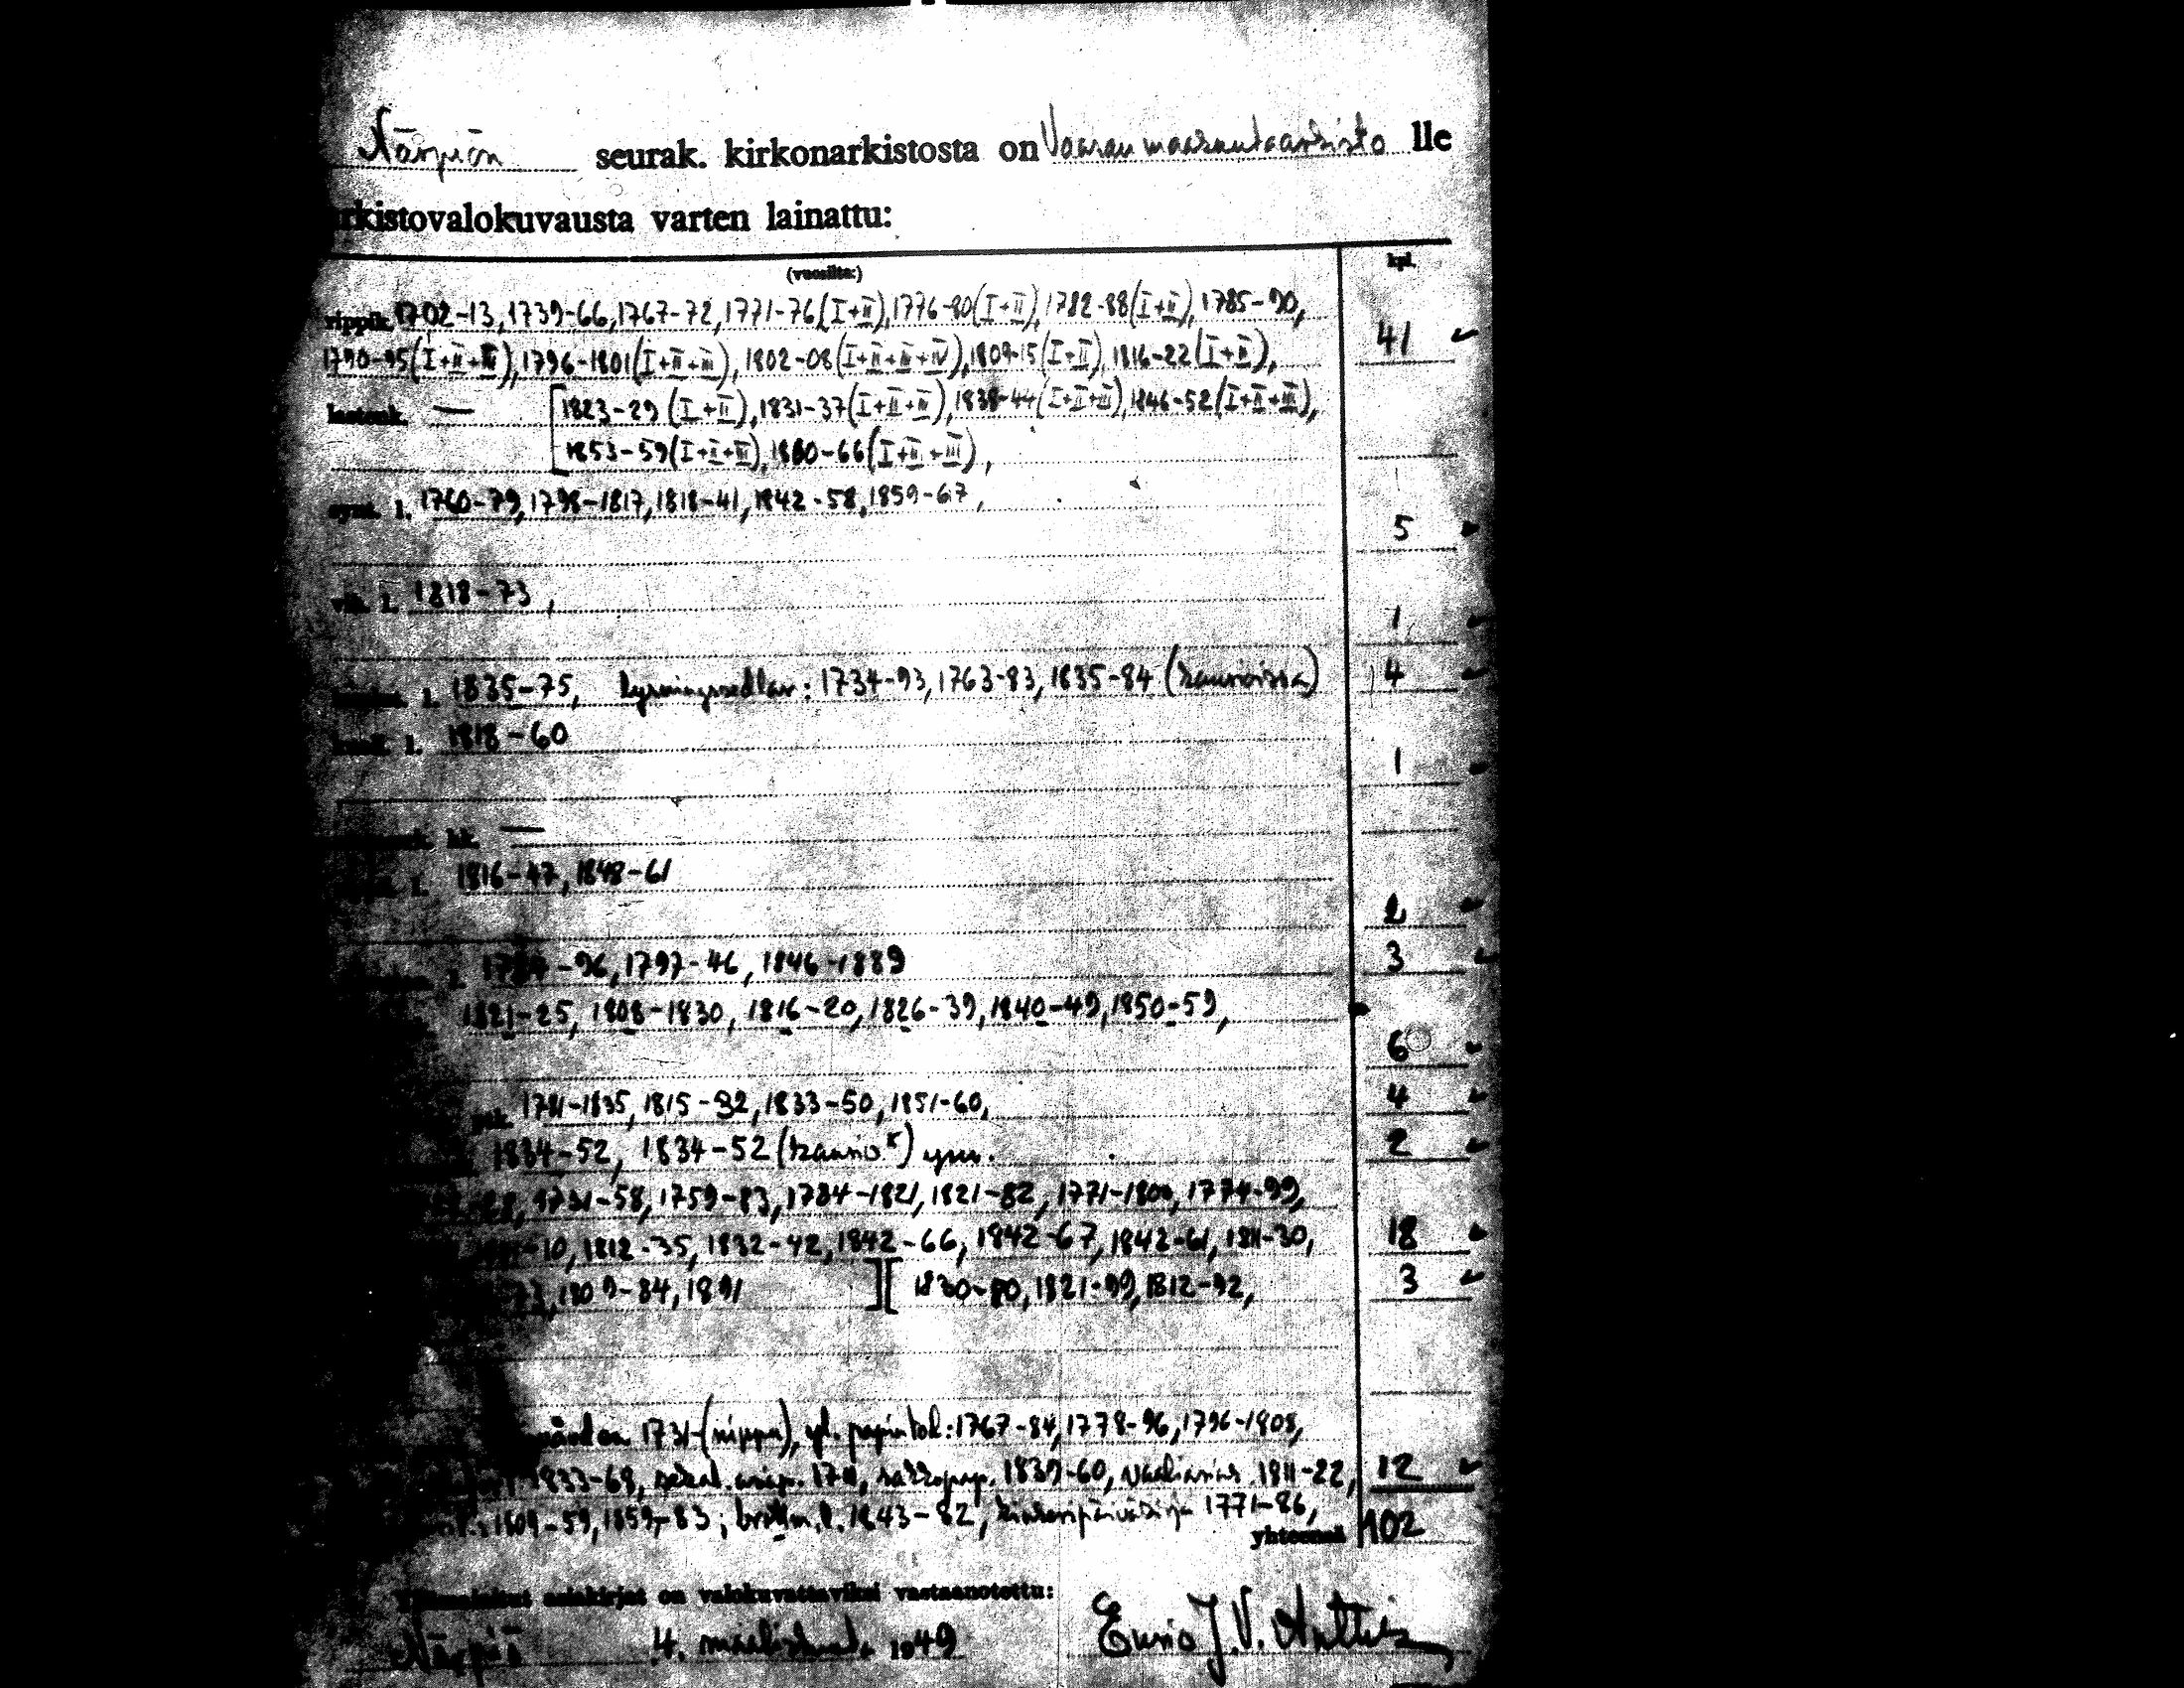 Närpiön seurak. kirkonarkistosta on Vaasan maakuntaarkisto lle
rkistovalokuvausta varten lainattu:
(vuosilta:) kpl.
rippik. 1702-13, 1739-66, 1767-72, 1771-76 (I+II), 1776-80 (I+II), 1782-88 (I+II), 1785-90,
1790-95 (I+II+III), 1796-1801 (I+II+III), 1802-08 (I+II+III+IV), 1809-15 (I+II), 1816-22 (I+II), 41
lastenk. — [1823-29 (I+II), 1831-37 (I+II+III), 1838-44 (I+II+III), 1846-52 (I+II+III),
1853-59 (I+II+III), 1860-66 (I+II+III),
synt. l. 1760-79, 1798-1817, 1818-41, 1842-58, 1859-67, 5
vih. l. 1818-73, 1
l. 1835-75, Lysningssedlar: 1734-93, 1763-83, 1835-84 (kansioissa) 4
kuoll. l. 1818-60 1
hk. —
l. 1816-47, 1848-61 2
l. -96, 1797-46, 1846-1889 3
1821-25, 1808-1830, 1816-20, 1826-39, 1840-49, 1850-59, 6
ptk. 1781-1835, 1815-32, 1833-50, 1851-60, 4
1834-52, 1834-52 (kansio) 2
-28, 1731-58, 1759-83, 1784-1821, 1821-82, 1771-1800, 1774-99,
-10, 1812-35, 1832-42, 1842-66, 1842-67, 1842-61, 1811-30, 18
-73, 1809-84, 1891 ][ 1830-80, 1821-99, 1812-92, 3
1731-(nippu), papintod.: 1767-84, 1778-96, 1796-1808,
1833-68, 1839-60, 1811-22, 12
1609-59, 1859-83; 1843-82, kinkeripäiväkirja 1771-86,
yhteensä 102
asiakirjat on valokuvattaviksi vastaanotettu:
Närpiö 4. maaliskuuta 1949 J. V.